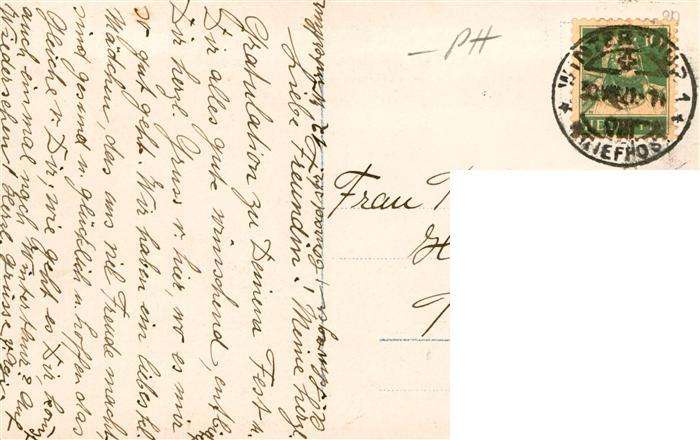 Liebe Freundin! Meine herzl.
Gratulation zu Deinem Fest u.
Dir alles gute wünschend, entbi.
Dir herzl. Gruss v. hier, wo es mir
st gut geht. Wir haben ein liebes kl.
Mädchen, das uns viel Freude macht
sind gesund u. glücklich u. hoffen das
Gleiche v. Dir, wie geht es Dir, kom
auch einmal nach Winterthur? Auf
Wiedersehen! Herzl. Grüsse v.
Frau
PH
WINTERTHUR 1
BRIEFPOST